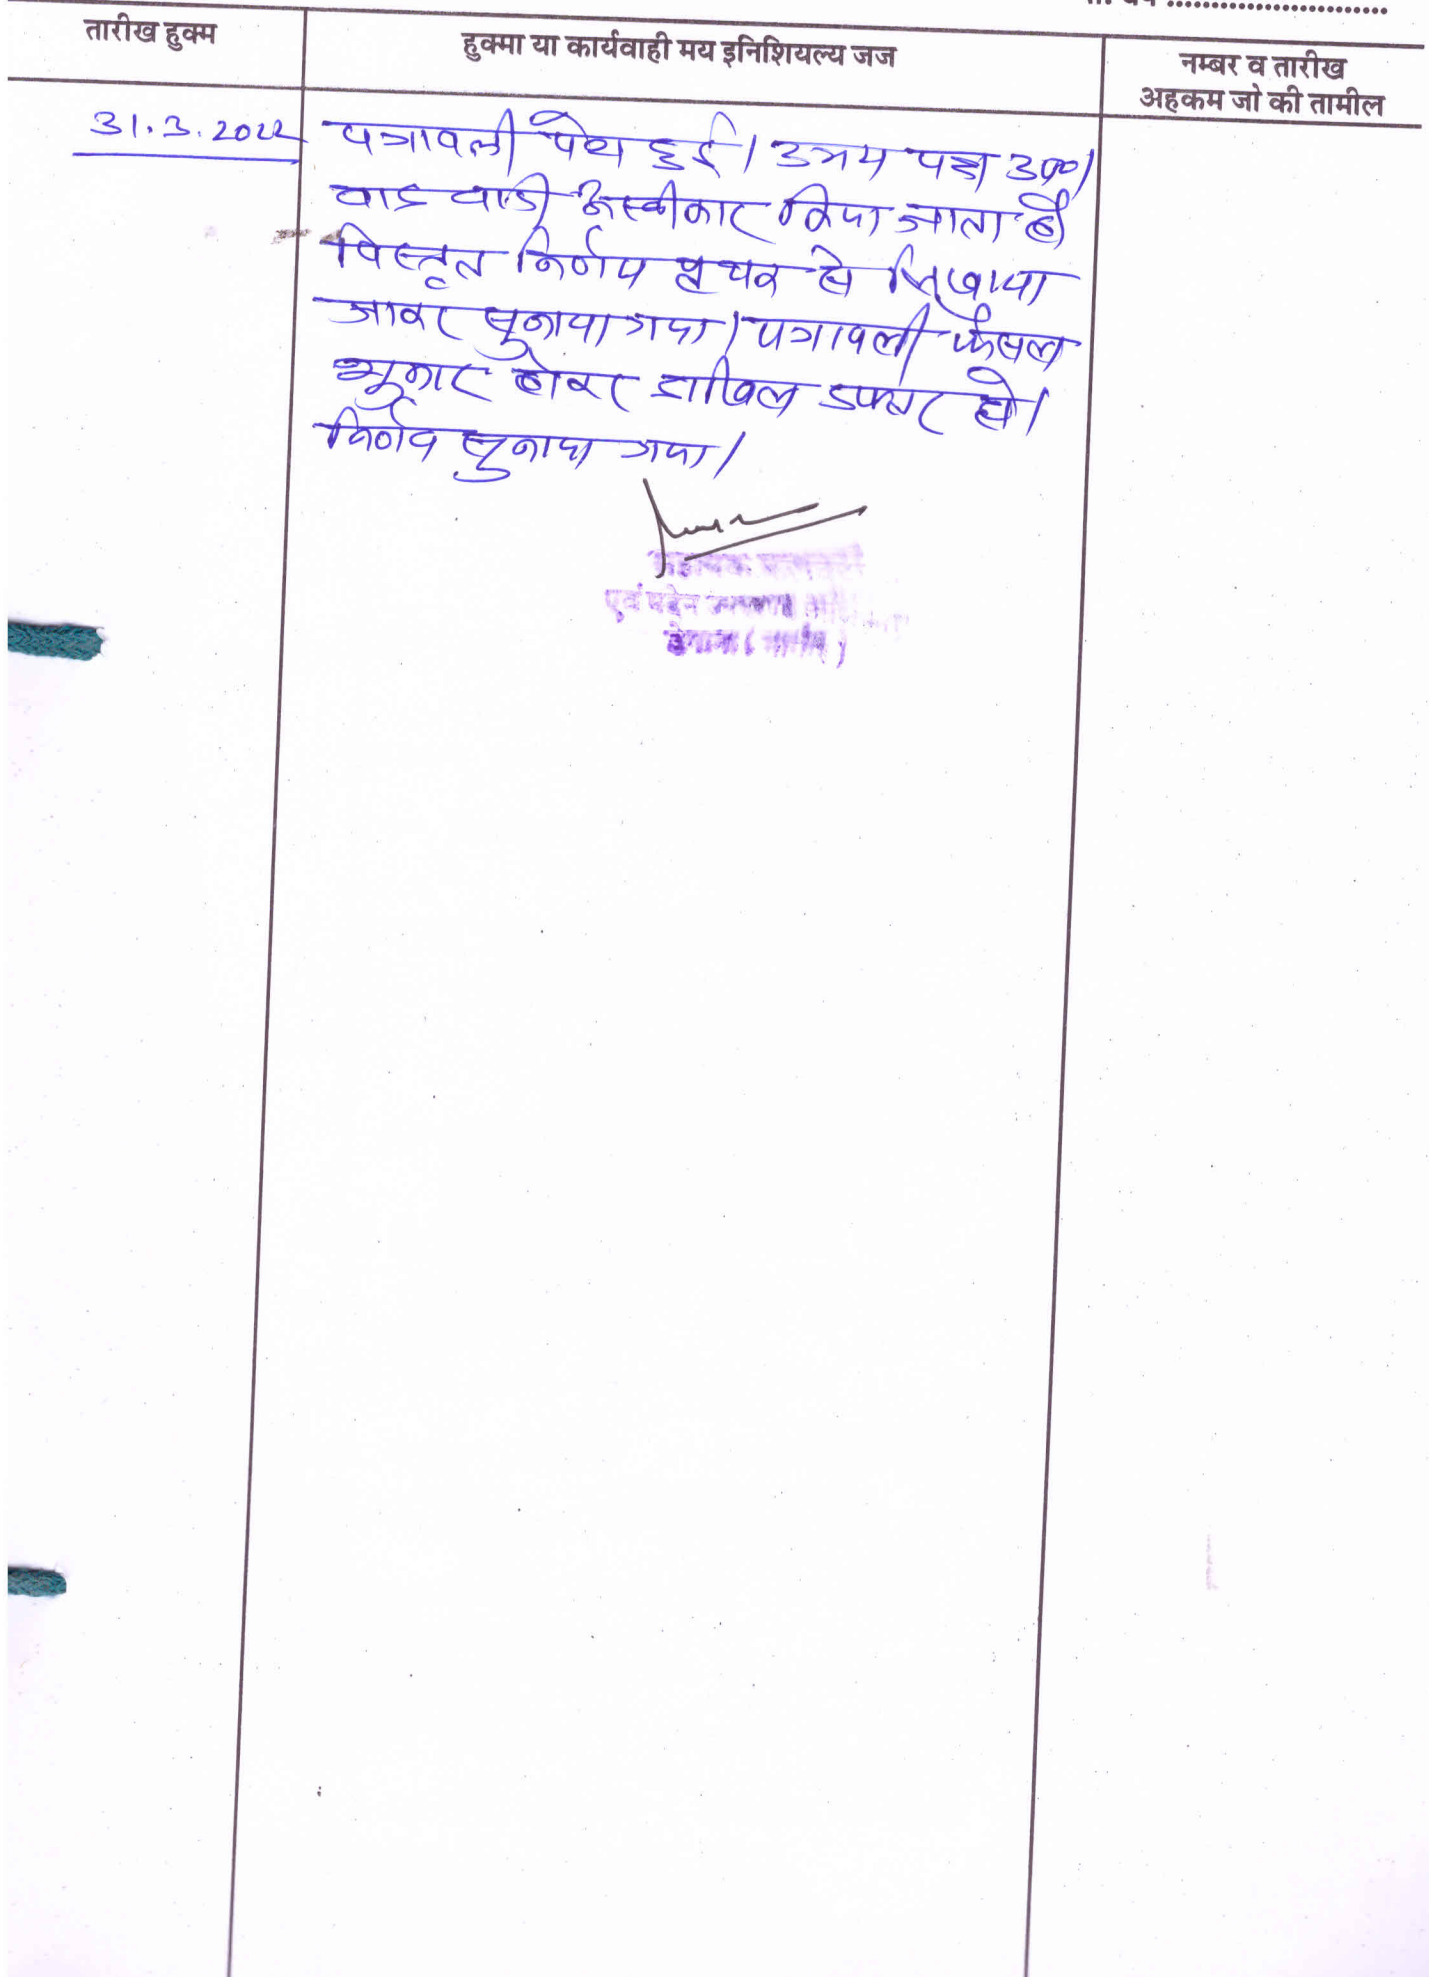 तारीख हुक्म
हुक्मा या कार्यवाही मय इनिशियल्य जज
नम्बर व तारीख
अहकम जो की तामील
31.3.2022
पत्रावली पेश हुई। उभय पक्ष उप०।
वाद वादी अस्वीकार किया जाता है
विस्तृत निर्णय पृथक से लिखाया
जाकर सुनाया गया। पत्रावली फैसल
शुमार होकर दाखिल दफ्तर हो।
निर्णय सुनाया गया।
एवं पदेन